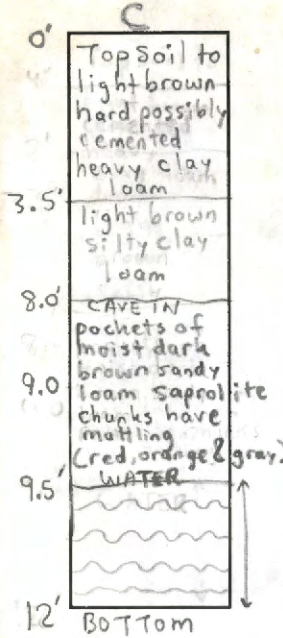 C
0'
Topsoil to
light brown
hard possibly
cemented
heavy clay
loam
3.5'
light brown
silty clay
loam
8.0'
CAVE IN
pockets of
moist dark
brown sandy
9.0
loam saprolite
chunks have
mottling
(red, orange & gray)
9.5'
WATER
12'
BOTTOM